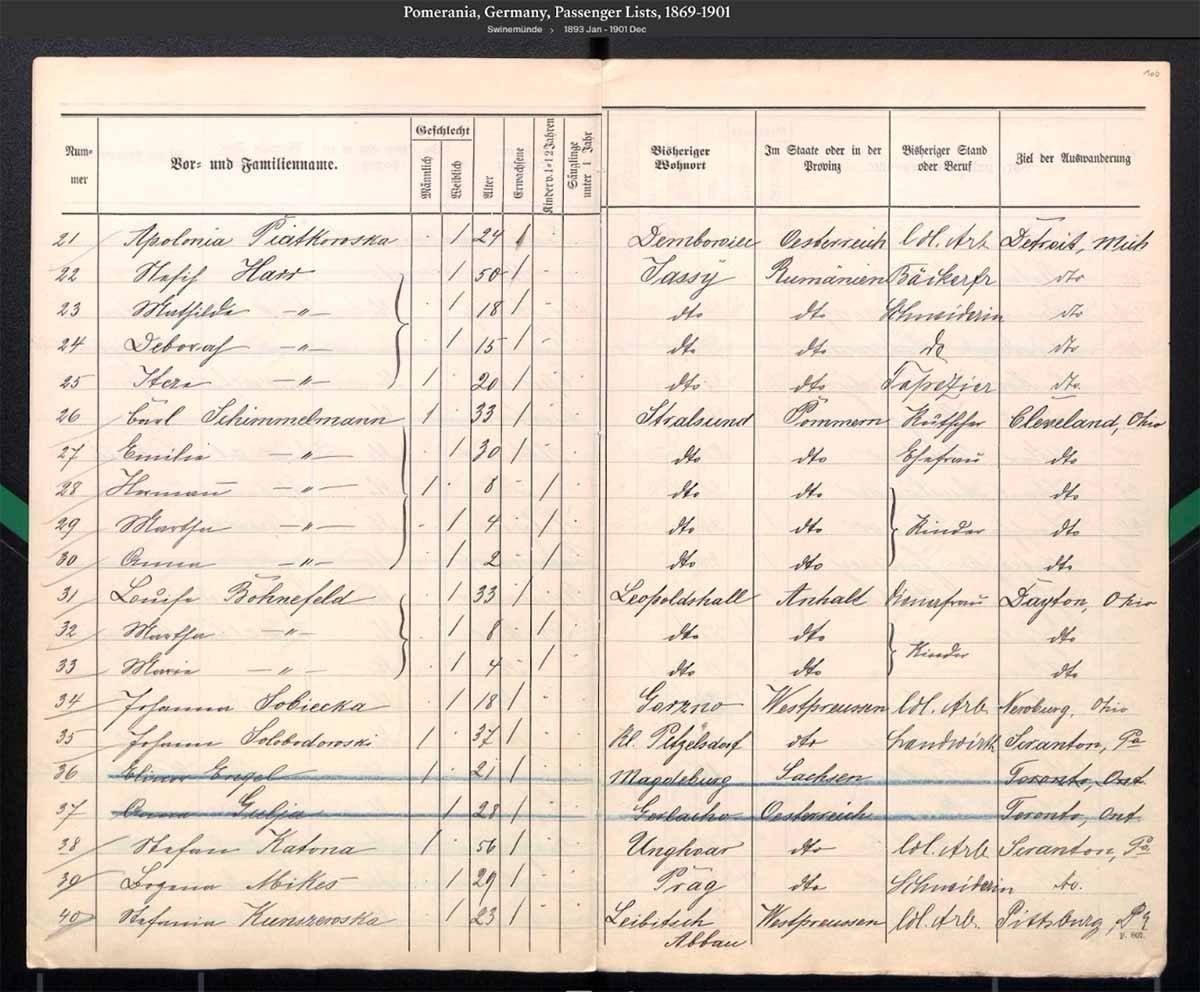 Pomerania, Germany, Passenger Lists, 1869-1901
Swinemünde › 1893 Jan - 1901 Dec
100
Num-mer Vor- und Familienname. Geschlecht Männlich Weiblich Alter Erwachsene Kinder v. 1-12 Jahren Säuglinge unter 1 Jahr Bisheriger Wohnort Im Staate oder in der Provinz Bisheriger Stand oder Beruf Ziel der Auswanderung
21 Apolonia Piatkowska 1 24 1 Dembowiec Oesterreich ldl. Arb. Detroit, Mich
22 Harr 1 50 1 Jassy Rumänien Bäckerfr dto
23 Mathilde —"— 1 18 1 dto dto Schneiderin dto
24 Deborah —"— 1 15 1 dto dto do dto
25 —"— 1 20 1 dto dto Tapezier dto
26 Carl Schimmelmann 1 33 1 Stralsund Pommern Kutscher Cleveland, Ohio
27 Emilie —"— 1 30 1 dto dto Ehefrau dto
28 Hermann —"— 1 8 1 dto dto dto
29 Martha —"— 1 4 1 dto dto Kinder dto
30 Anna —"— 1 2 1 dto dto dto
31 Louise Böhnefeld 1 33 1 Leopoldshall Anhalt Dayton, Ohio
32 Martha —"— 1 8 1 dto dto dto
33 Marie —"— 1 4 1 dto dto Kinder dto
34 Johanna Sobiecka 1 18 1 Gorzno Westpreussen ldl. Arb. Newburg, Ohio
35 Johann Solobodowski 1 37 1 Kl. Pelzelsdorf dto Landwirth Scranton, Pa
36 Engel 1 21 1 Magdeburg Sachsen Toronto, Ont
37 Anna Gubja 1 28 1 Oesterreich Toronto, Ont
38 Stefan Katona 1 56 1 Unghvar dto ldl. Arb. Scranton, Pa.
39 Bozena Mikes 1 29 1 Prag dto Schneiderin do.
40 Stefania Kunszewska 1 23 1 Leibitsch Westpreussen ldl. Arb. Pittsburg, Pa
Abbau